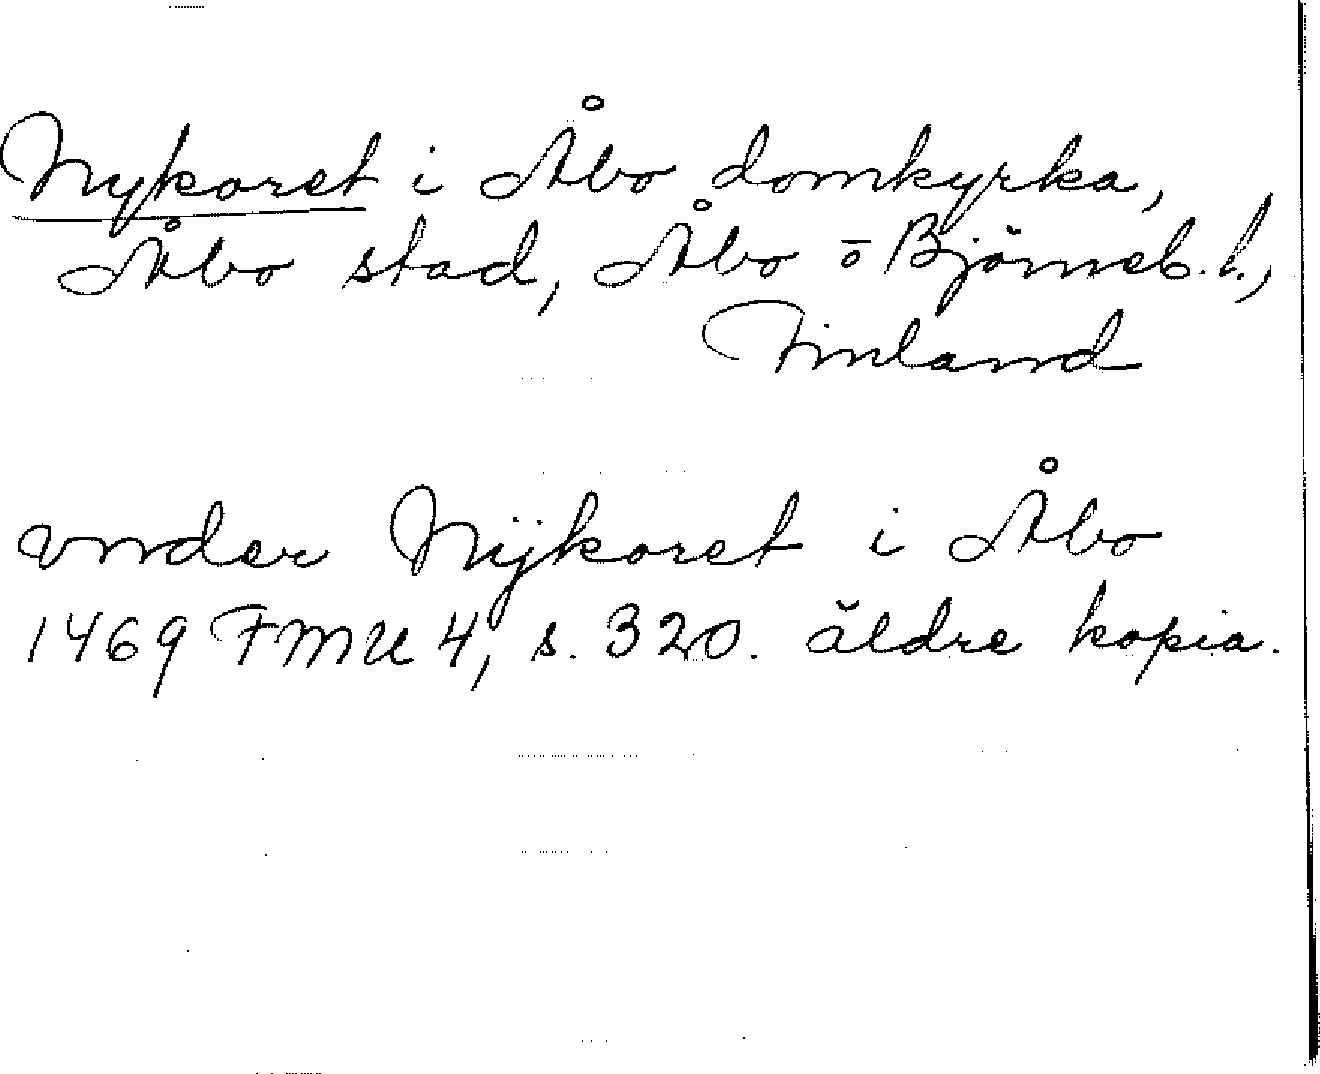 Nykoret i Åbo domkyrka,
Åbo stad, Åbo o Björneb. l.,
Finland
vnder Nÿkoret i Åbo
1469 FMU 4, s. 320. äldre kopia.